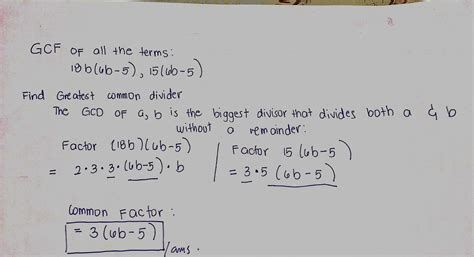 GCF of all the terms:
18b(6b-5), 15(6b-5)
Find Greatest common divider
The GCD of a, b is the biggest divisor that divides both a & b
without a remainder:
Factor (18b)(6b-5) | Factor 15(6b-5)
= 2·3·3·(6b-5)·b | = 3·5(6b-5)
Common Factor:
= 3(6b-5)
/ans.